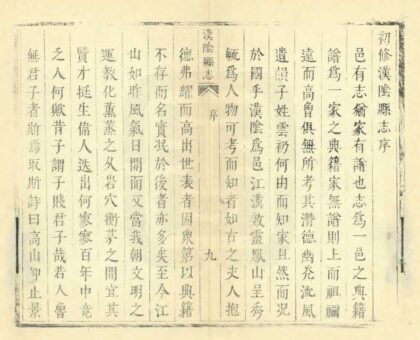 初修漢陰縣志序
邑有志猶家有譜也志爲一邑之典籍
譜爲一家之典籍家無譜則上而祖禰
遠而高曾俱無所考其潛德幽光流風
遺韻子姓雲礽何由而知家且然而況
於國乎漢陰爲邑江漢效靈鳳山呈秀
毓爲人物可考而知者如右之丈人抱
漢陰縣志
序
九
德弗耀而高出世表者固衆第以典籍
不存而名實泯於後者亦多矣至今江
山如昨風氣日開而又當我朝文明之
運教化薰蒸之久岩穴衡茅之間宜其
賢才挺生偉人迭出何寥寥百年中竟
乏人何歟昔子謂子賤君子哉若人魯
無君子者斯焉取斯詩曰高山仰止景